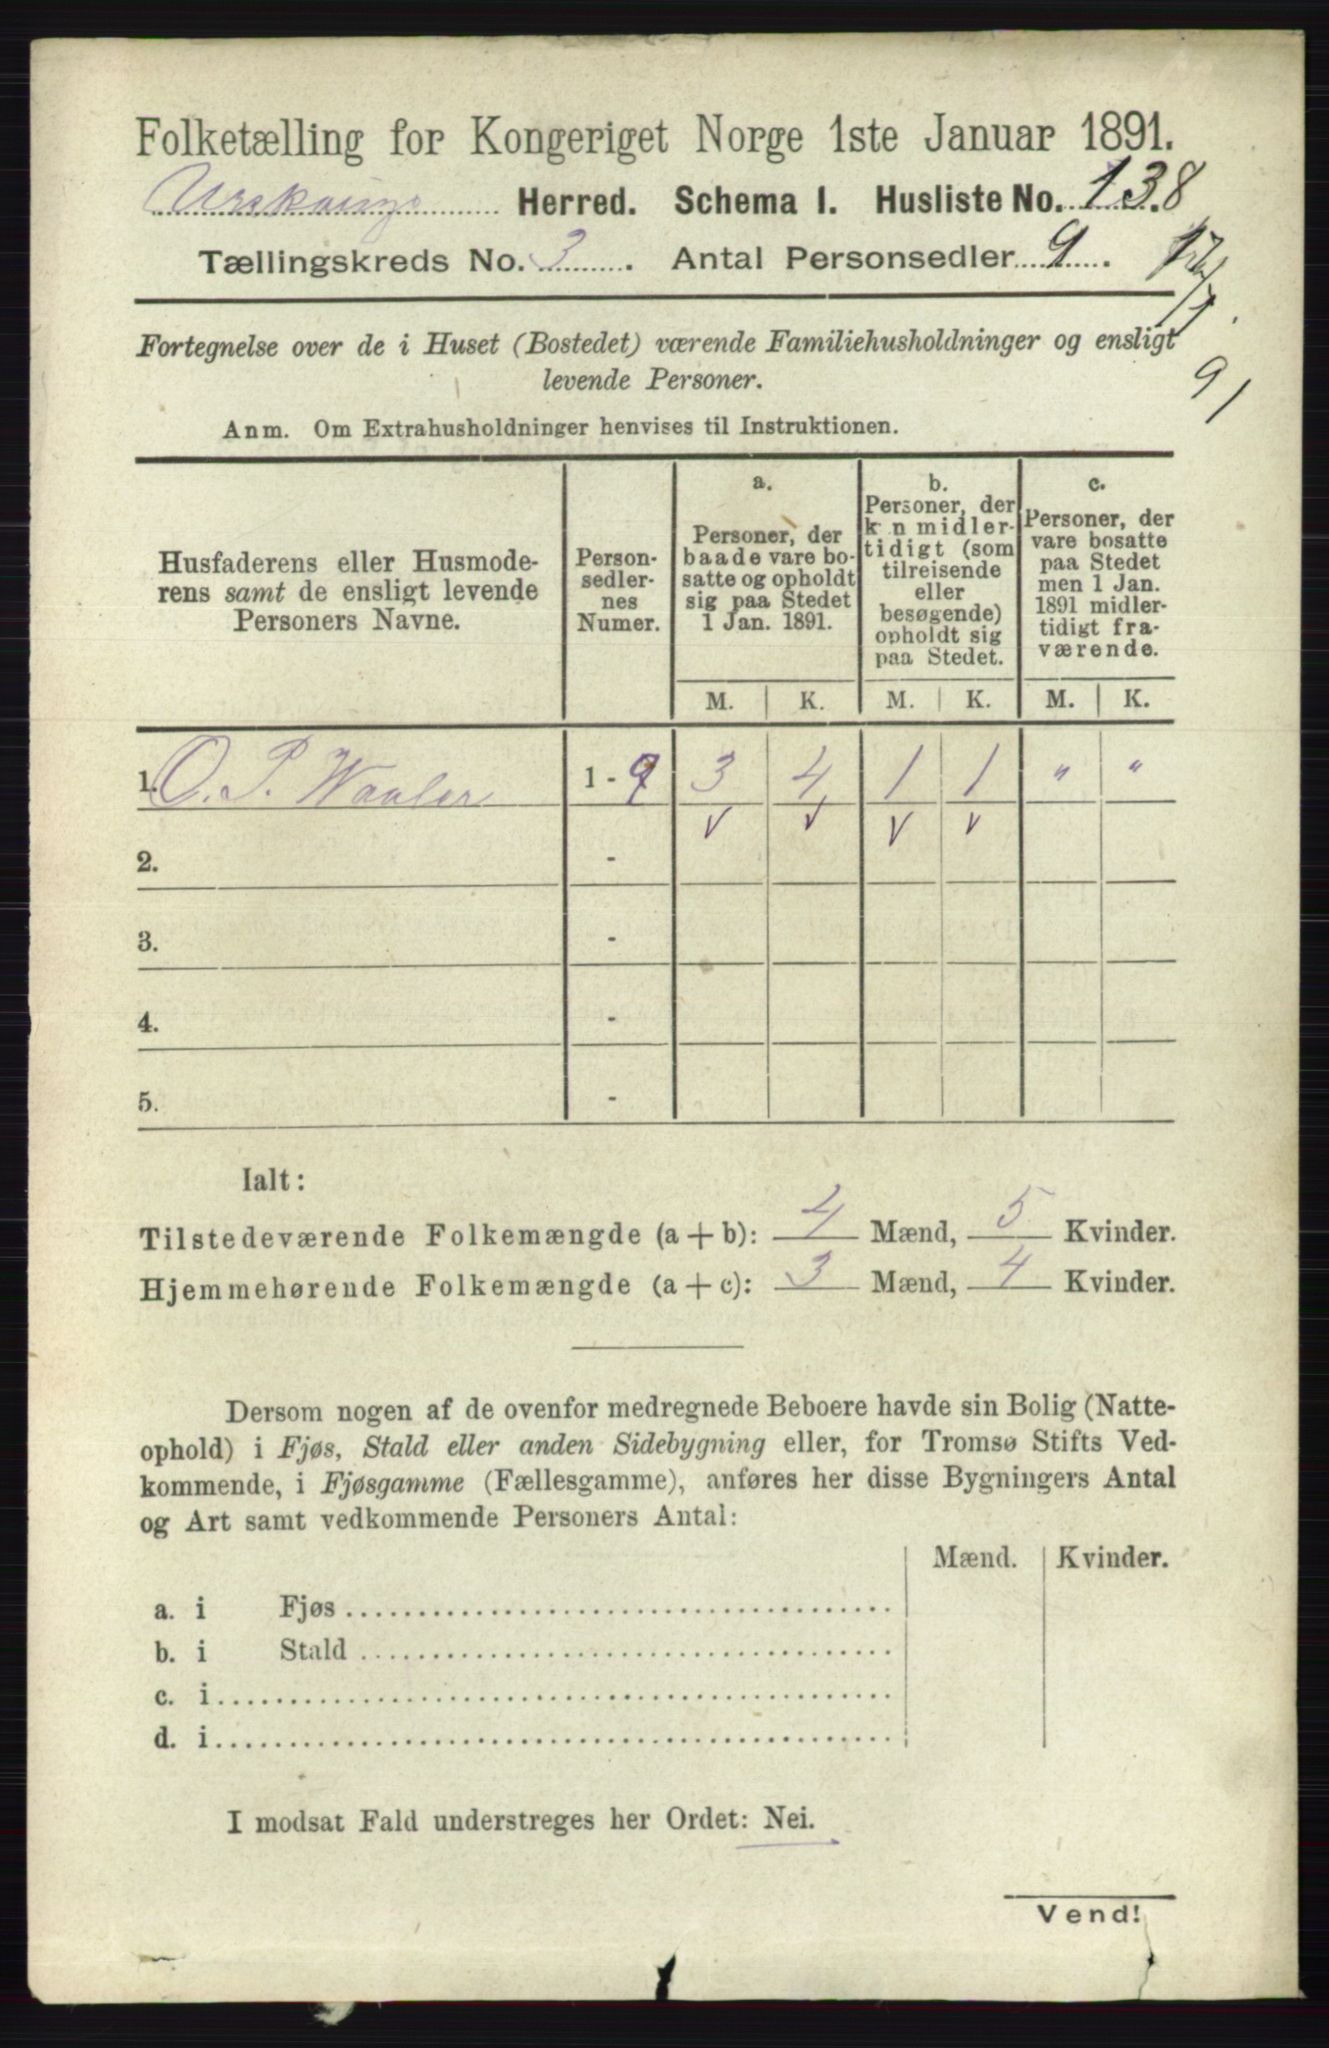 Folketælling for Kongeriget Norge 1ste Januar 1891.
Urskougs Herred. Schema 1. Husliste No. 138
Tællingskreds No. 3. Antal Personsedler 9.
Fortegnelse over de i Huset (Bostedet) værende Familiehusholdninger og ensligt
levende Personer.
91
Anm. Om Extrahusholdninger henvises til Instruktionen.
Husfaderens eller Husmode-
rens samt de ensligt levende
Personers Navne.
Person-
sedler-
nes
Numer.
a.
Personer, der
baade vare bo-
satte og opholdt
sig paa Stedet
1 Jan. 1891.
b.
Personer, der
k n midler-
tidigt (som
tilreisende
eller
besøgende)
opholdt sig
paa Stedet.
c.
Personer, der
vare bosatte
paa Stedet
men 1 Jan.
1891 midler-
tidigt fra-
værende.
M. K. M. K. M. K.
1. O. P. Waaler 1 - 9 3 4 1 1 " "
v v v v
2. -
3. -
4. -
5. -
Ialt:
Tilstedeværende Folkemængde (a + b): 4 Mænd, 5 Kvinder.
Hjemmehørende Folkemængde (a + c): 3 Mænd, 4 Kvinder.
Dersom nogen af de ovenfor medregnede Beboere havde sin Bolig (Natte-
ophold) i Fjøs, Stald eller anden Sidebygning eller, for Tromsø Stifts Ved-
kommende, i Fjøsgamme (Fællesgamme), anføres her disse Bygningers Antal
og Art samt vedkommende Personers Antal:
Mænd. Kvinder.
a. i Fjøs
b. i Stald
c. i
d. i
I modsat Fald understreges her Ordet: Nei.
Vend!